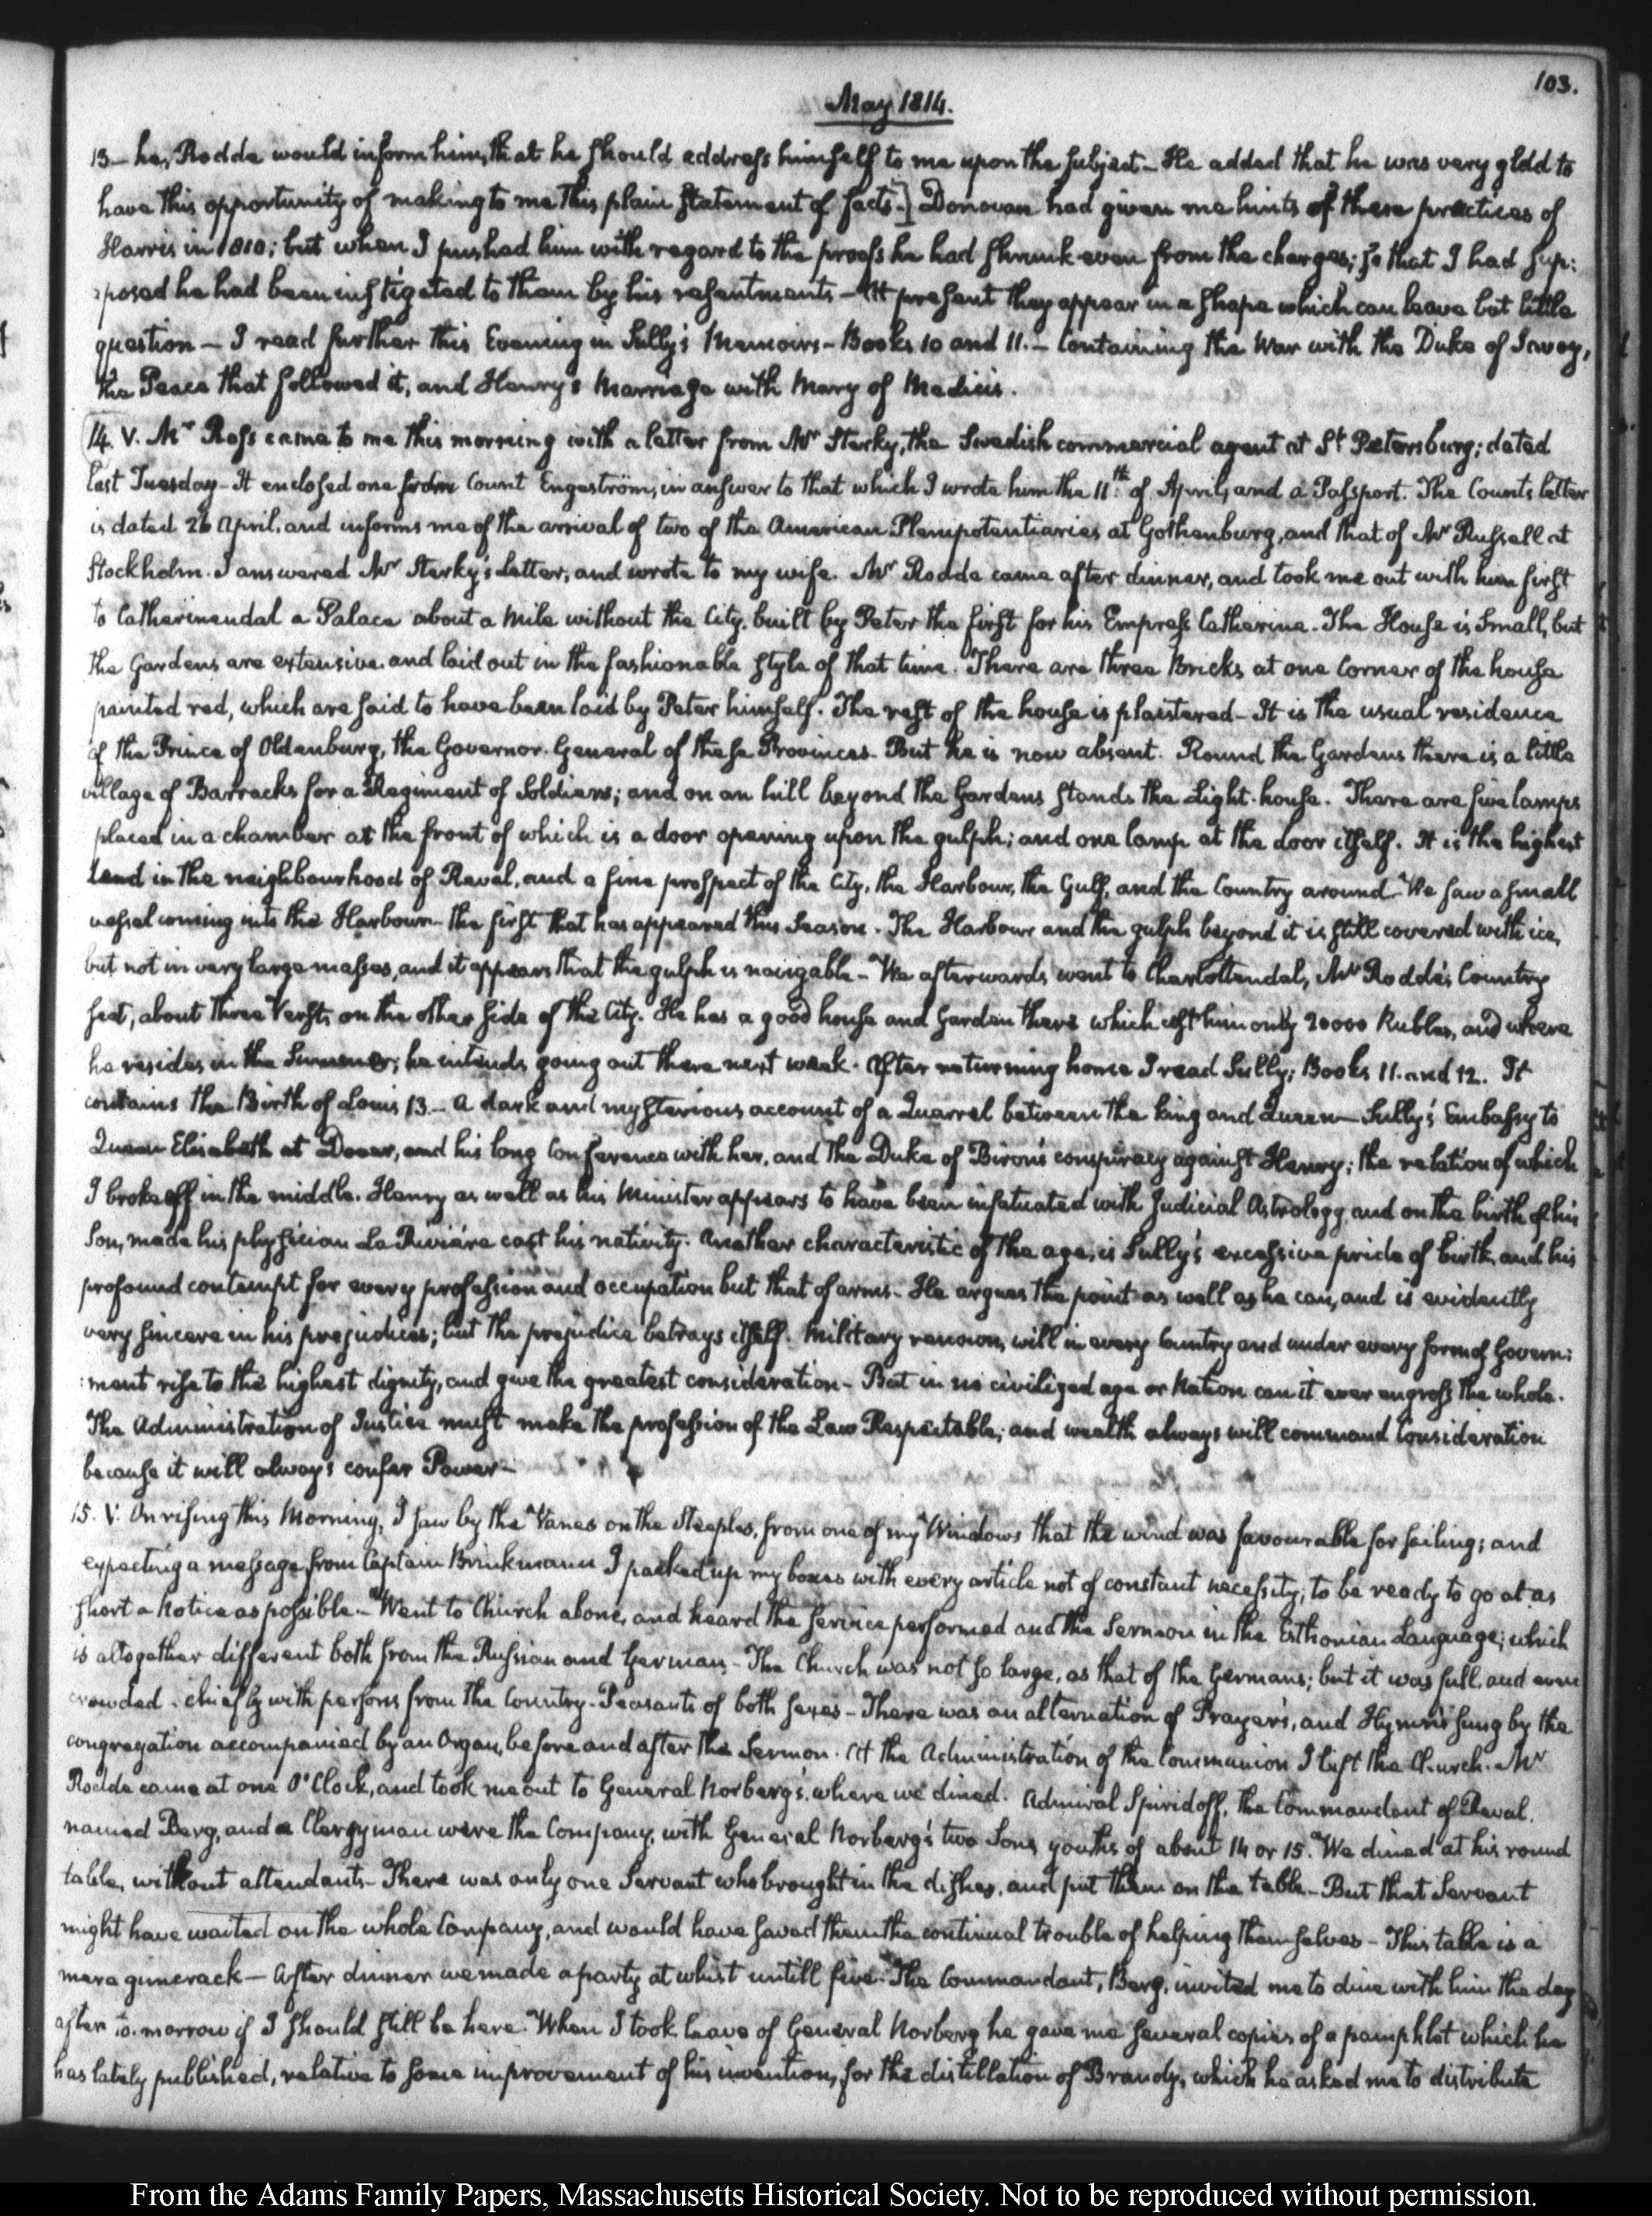 103.
May 1814.
13— he, Rodde would inform him, that he should address himself to me upon the subject— He added that he was very glad to
have this opportunity of making to me this plain statement of facts—] Donovan had given me hints of these practices of
Harris in 1810; but when I pushed him with regard to the proofs he had shrunk even from the charges; so that I had sup:
:posed he had been instigated to them by his resentments— At present they appear in a shape which can leave but little
question— I read further this Evening in Sully's Memoirs— Books 10 and 11.— Containing the War with the Duke of Savoy,
the Peace that followed it, and Henry's Marriage with Mary of Medicis.
14. V. Mr Ross came to me this morning with a letter from Mr Sterky, the Swedish commercial agent at St Petersburg; dated
last Tuesday— It enclosed one from Count Engeström, in answer to that which I wrote him the 11th of April, and a Passport. The Counts letter
is dated 26 April, and informs me of the arrival of two of the American Plenipotentiaries at Gothenburg, and that of Mr Russell at
Stockholm. I answered Mr Sterky's letter, and wrote to my wife. Mr Rodde came after dinner, and took me out with him first
to Catherinendal a Palace about a Mile without the City, built by Peter the first for his Empress Catherine. The House is Small, but
the Gardens are extensive and laid out in the fashionable style of that time. There are three Bricks at one Corner of the house
painted red, which are said to have been laid by Peter himself. The rest of the house is plaistered— It is the usual residence
of the Prince of Oldenburg, the Governor-General of these Provinces. But he is now absent. Round the Gardens there is a little
village of Barracks for a Regiment of Soldiers; and on an hill beyond the Gardens stands the Light-house. There are five lamps
placed in a chamber at the front of which is a door opening upon the gulph; and one lamp at the door itself. It is the highest
land in the neighbourhood of Reval, and a fine prospect of the City, the Harbour, the Gulf, and the Country around— We saw a small
vessel coming into the Harbour— the first that has appeared this Season. The Harbour and the gulph beyond it is still covered with ice,
but not in very large masses, and it appears that the gulph is navigable— We afterwards went to Charlottendal, Mr Rodde's Country
seat, about three Versts on the other side of the City. He has a good house and Garden there which cost him only 20000 Rubles, and where
he resides in the Summer; he intends going out there next week. After returning home I read Sully; Books 11. and 12. It
contains the Birth of Louis 13.— A dark and mysterious account of a Quarrel between the King and Queen— Sully's Embassy to
Queen Elizabeth at Dover, and his long Conference with her, and the Duke of Biron's conspiracy against Henry; the relation of which
I broke off in the middle. Henry as well as his Minister appears to have been infatuated with Judicial Astrology, and on the birth of his
Son, made his physician La Riviére cast his nativity. Another characteristic of the age, is Sully's excessive pride of birth, and his
profound contempt for every profession and occupation but that of arms— He argues the point as well as he can, and is evidently
very sincere in his prejudices; but the prejudice betrays itself. Military renown, will in every Country and under every form of Govern:
:ment rise to the highest dignity, and give the greatest consideration— But in no civilized age or Nation can it ever engross the whole.
The Administration of Justice must make the profession of the Law Respectable; and wealth always will command Consideration
because it will always confer Power—
15. V. On rising this Morning, I saw by the Vanes on the Steeples, from one of my Windows that the wind was favourable for sailing; and
expecting a message from Captain Brinkmann I packed up my boxes with every article not of constant necessity, to be ready to go at as
short a Notice as possible— Went to Church alone, and heard the service performed and the Sermon in the Esthonian Language; which
is altogether different both from the Russian and German— The Church was not so large, as that of the Germans; but it was full, and even
crowded— chiefly with persons from the Country— Peasants of both sexes— There was an alternation of Prayers, and Hymns sung by the
congregation accompanied by an Organ, before and after the Sermon. At the Administration of the Communion I left the Church. Mr
Rodde came at one O'Clock, and took me out to General Norberg's, where we dined. Admiral Spiridoff, the Commandant of Reval,
named Berg, and a Clergyman were the Company, with General Norberg's two Sons, youths of about 14 or 15. We dined at his round
table, without attendants— There was only one Servant who brought in the dishes, and put them on the table— But that Servant
might have waited on the whole Company, and would have saved them the continual trouble of helping themselves— This table is a
mere gimcrack— After dinner we made a party at whist untill five. The Commandant, Berg, invited me to dine with him the day
after to-morrow if I should still be here. When I took leave of General Norberg he gave me several copies of a pamphlet which he
has lately published, relative to some improvement of his invention, for the distillation of Brandy, which he asked me to distribute
From the Adams Family Papers, Massachusetts Historical Society. Not to be reproduced without permission.